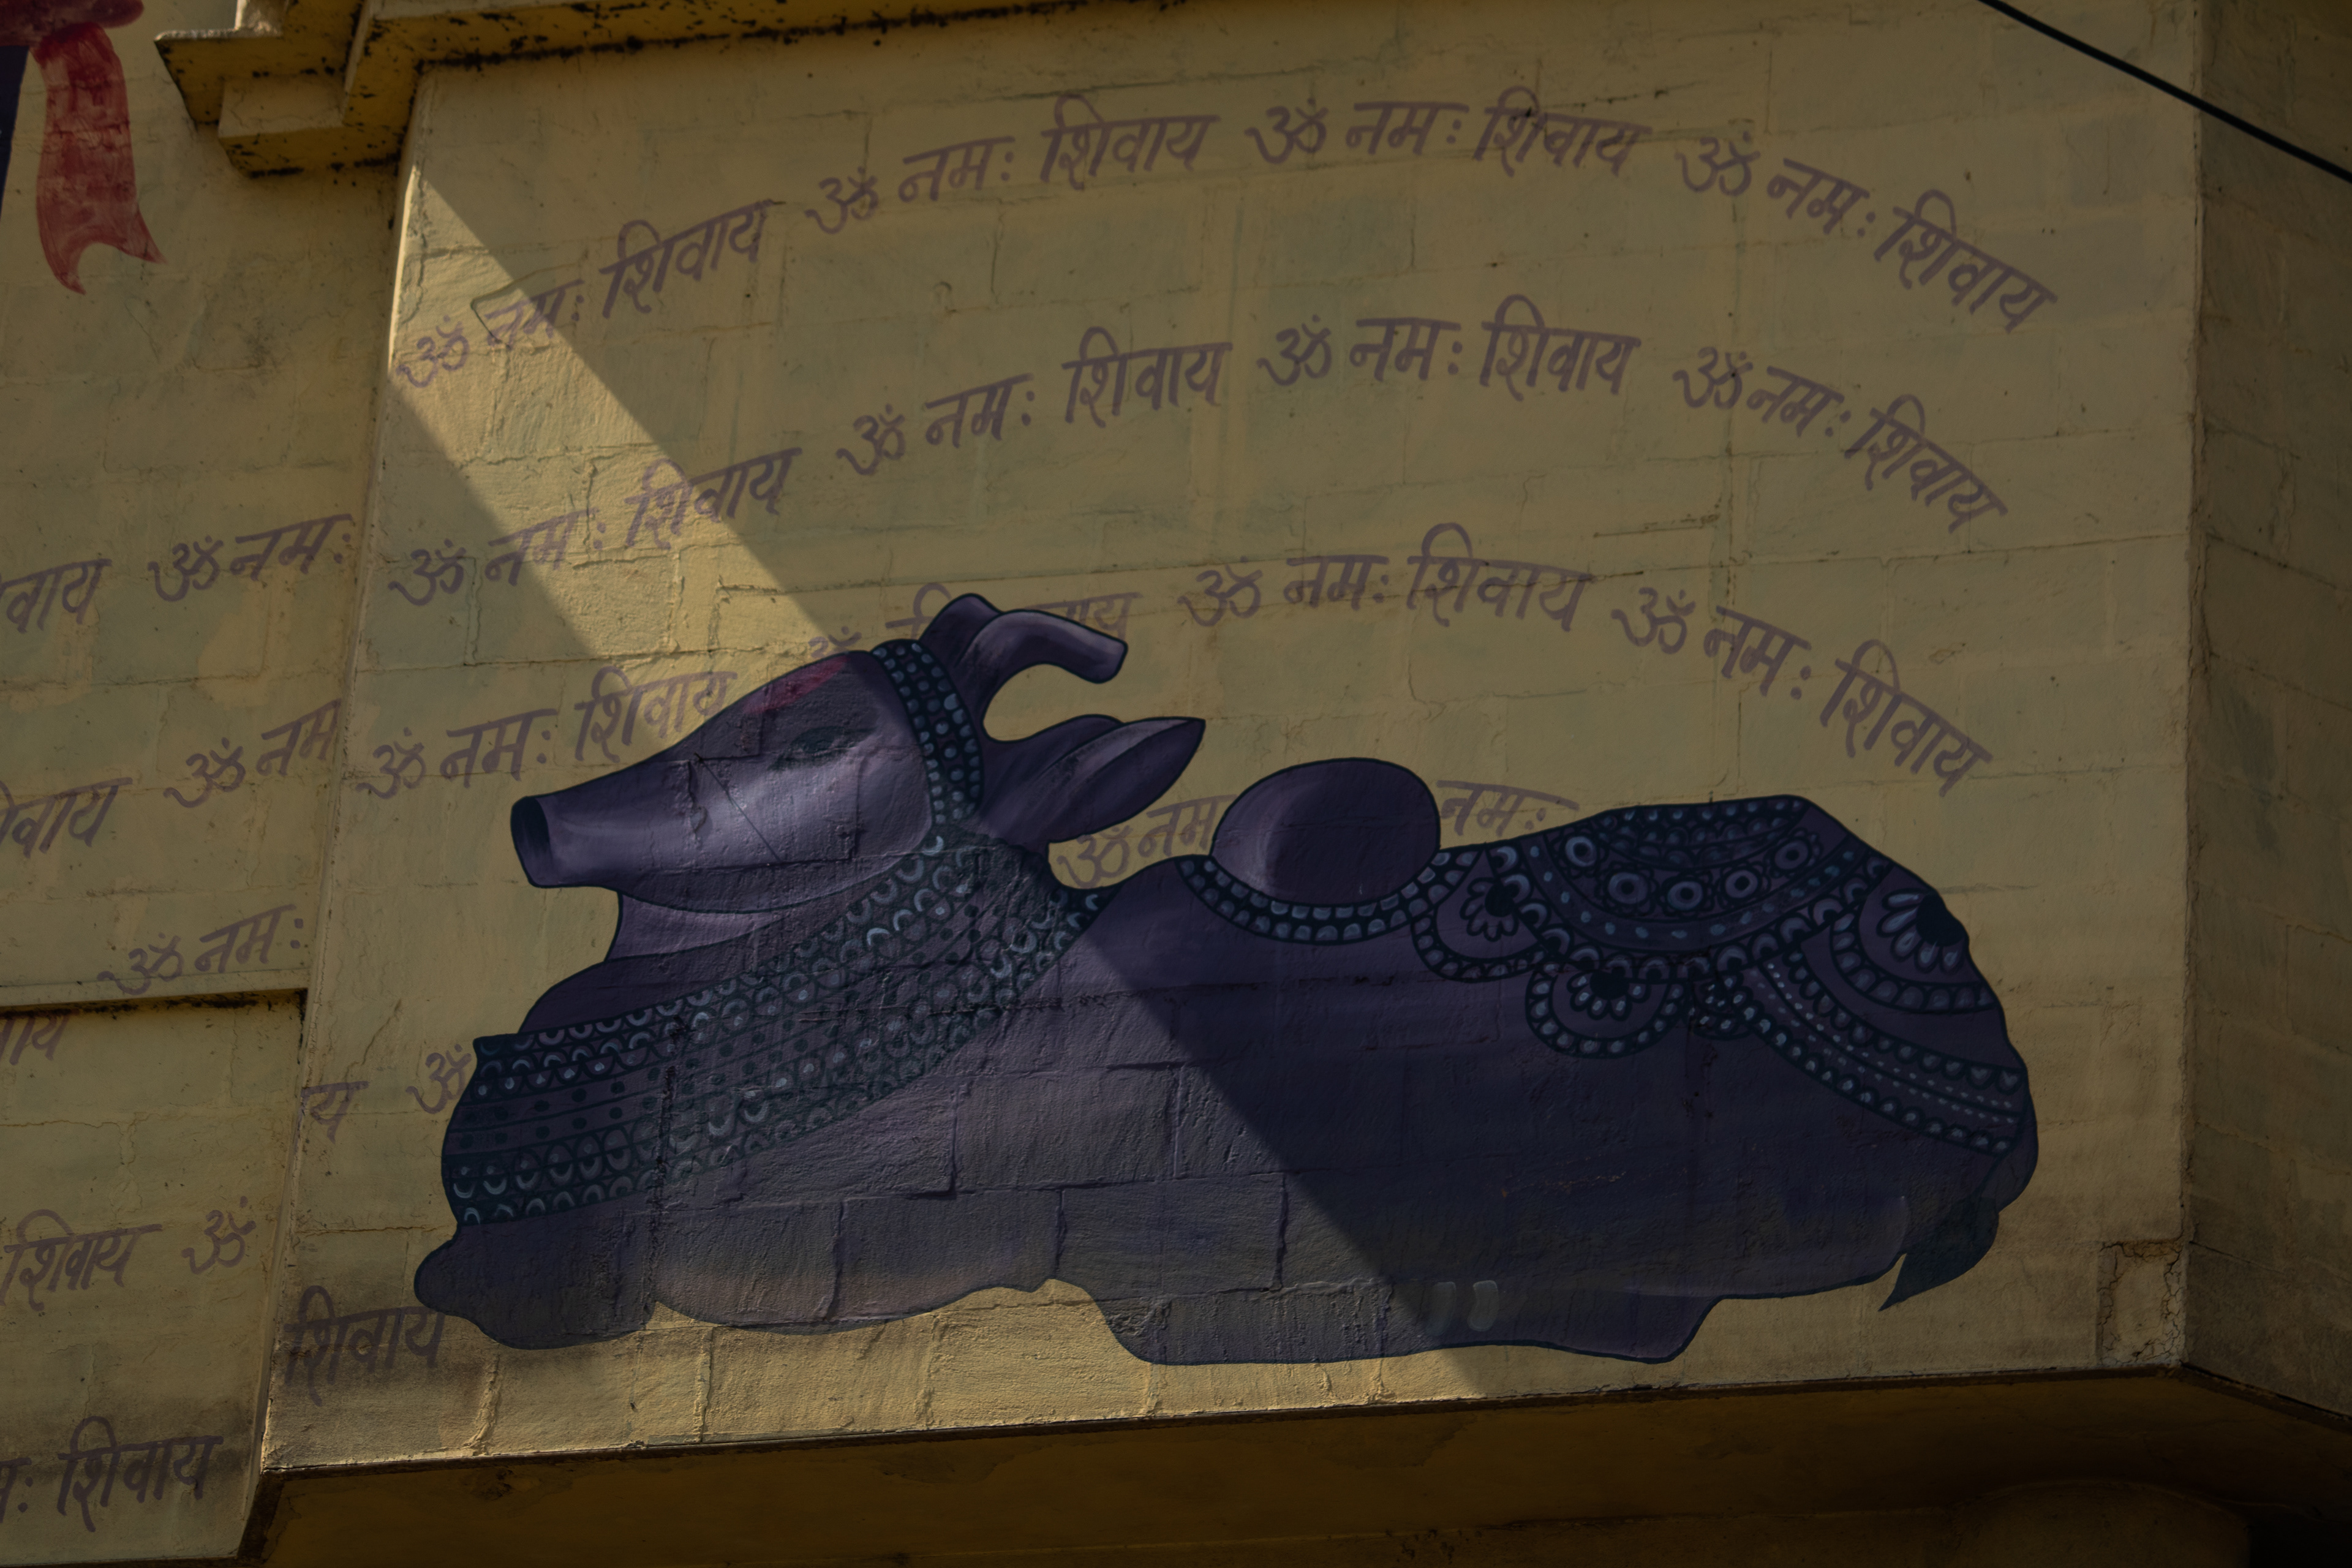 ॐ नमः शिवाय ॐ नमः शिवाय ॐ नमः शिवाय ॐ नमः शिवाय
ॐ नमः शिवाय ॐ नमः शिवाय ॐ नमः शिवाय ॐ नमः शिवाय
ॐ नमः शिवाय ॐ नमः शिवाय ॐ नमः शिवाय
ॐ नम नमः
ॐ
शिवाय
वाय ॐ नमः
वाय ॐ नम
ॐ नमः
शिवाय ॐ
शिवाय